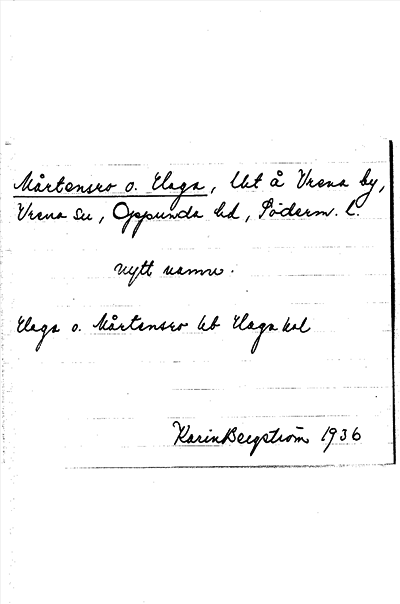 Mårtensro o. Haga, lht å Vrena by,
Vrena sn, Oppunda hd, Söderm. l.
nytt namn.
Haga o. Mårtensro hb Haga kal
Karin Bergström 1936